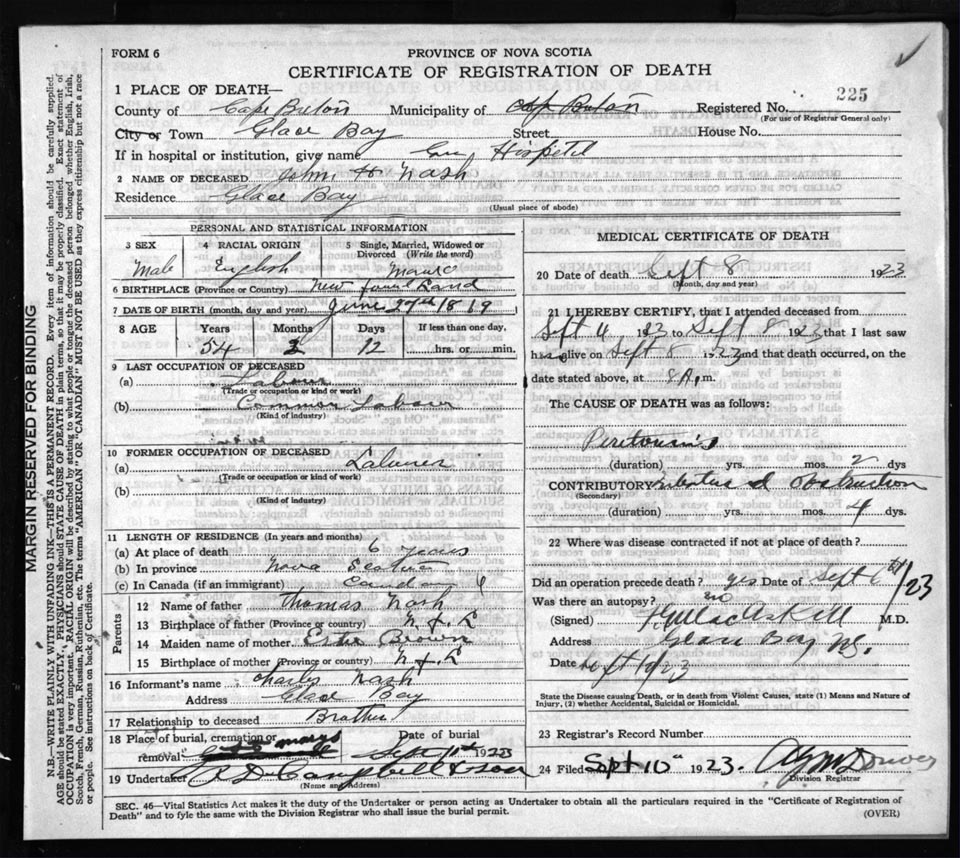 FORM 6
PROVINCE OF NOVA SCOTIA
CERTIFICATE OF REGISTRATION OF DEATH
1 PLACE OF DEATH—
County of Cape Breton Municipality of Cape Breton Registered No. 225
(For use of Registrar General only)
City or Town Glace Bay Street House No.
If in hospital or institution, give name Gen Hospital
2 NAME OF DECEASED John H Nash
Residence Glace Bay
(Usual place of abode)
PERSONAL AND STATISTICAL INFORMATION
3 SEX 4 RACIAL ORIGIN 5 Single, Married, Widowed or Divorced (Write the word)
Male English
6 BIRTHPLACE (Province or Country) New found land
7 DATE OF BIRTH (month, day and year) June 27th 1869
8 AGE Years Months Days If less than one day,
54 2 12 hrs. or min.
9 LAST OCCUPATION OF DECEASED
(a) Labour
(Trade or occupation or kind of work)
(b) Common Labour
(Kind of industry)
10 FORMER OCCUPATION OF DECEASED
(a) Labourer
(Trade or occupation or kind of work)
(b)
(Kind of industry)
11 LENGTH OF RESIDENCE (In years and months)
(a) At place of death 6 years
(b) In province Nova Scotia
(c) In Canada (if an immigrant) Canada
Parents
12 Name of father Thomas Nash
13 Birthplace of father (Province or country) N.F.L
14 Maiden name of mother Ester Brown
15 Birthplace of mother (Province or country) N.F.L
16 Informant's name Charles Nash
Address Glace Bay
17 Relationship to deceased Brother
18 Place of burial, cremation or removal Date of burial
marys Sept 1923
19 Undertaker A D Campbell & son
(Name and Address)
MEDICAL CERTIFICATE OF DEATH
20 Date of death Sept 8 1923
(Month, day and year)
21 I HEREBY CERTIFY, that I attended deceased from
Sept 4 1923 to Sept 8 1923 that I last saw
h alive on Sept 8 1923 and that death occurred, on the
date stated above, at 8 A. m.
The CAUSE OF DEATH was as follows:
Peritonitis
(duration) yrs. mos. 2 dys
CONTRIBUTORY Intestinal obstruction
(Secondary)
(duration) yrs. mos. 4 dys.
22 Where was disease contracted if not at place of death?
Did an operation precede death? yes Date of Sept 6th/23
Was there an autopsy? no
(Signed) MacAskill M.D.
Address Glace Bay NS.
Date Sept /23
State the Disease causing Death, or in death from Violent Causes, state (1) Means and Nature of
Injury, (2) whether Accidental, Suicidal or Homicidal.
23 Registrar's Record Number
24 Filed Sept 10" 1923.
Division Registrar
SEC. 46—Vital Statistics Act makes it the duty of the Undertaker or person acting as Undertaker to obtain all the particulars required in the "Certificate of Registration of
Death" and to fyle the same with the Division Registrar who shall issue the burial permit.
(OVER)
MARGIN RESERVED FOR BINDING
N.B.—WRITE PLAINLY WITH UNFADING INK—THIS IS A PERMANENT RECORD. Every item of information should be carefully supplied.
AGE should be stated EXACTLY. PHYSICIANS should STATE CAUSE OF DEATH in plain terms, so that it may be properly classified. Exact statement of
OCCUPATION is very important. RACIAL ORIGIN will be described by stating to what people or tongue the deceased person belonged whether English, Irish,
Scotch, French, German, Russian, Ruthenian, etc. The terms "AMERICAN" OR "CANADIAN" MUST NOT BE USED as they express citizenship but not a race
or people. See instructions on back of Certificate.